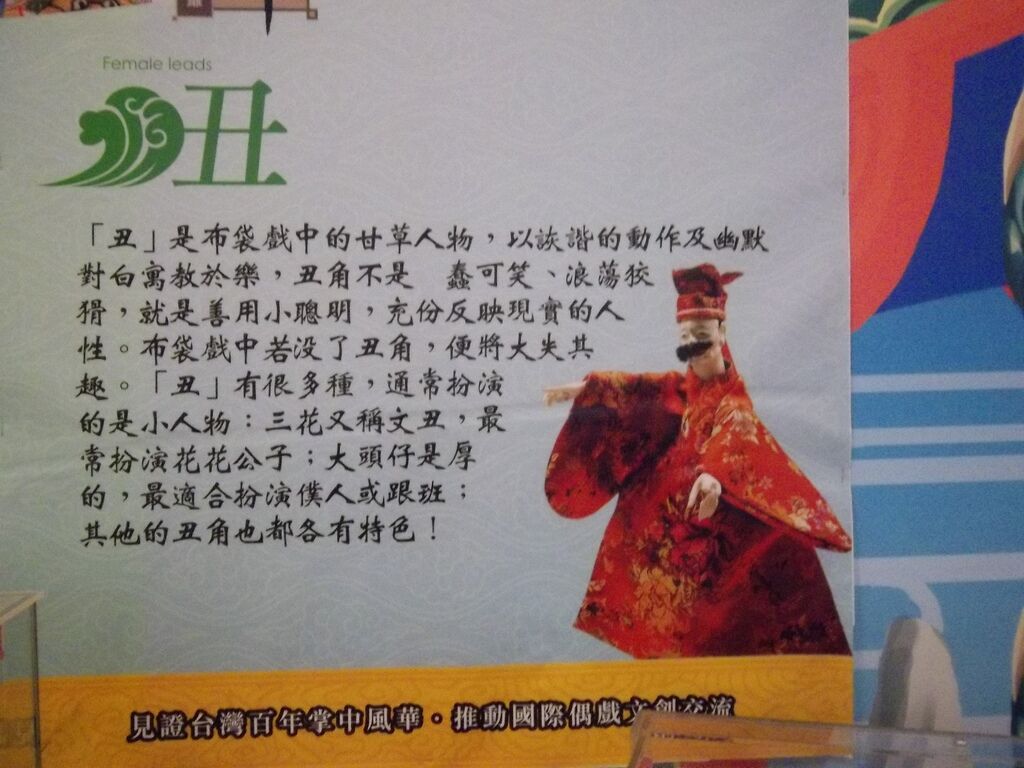 Female leads
丑
「丑」是布袋戲中的甘草人物，以詼諧的動作及幽默
對白寓教於樂，丑角不是　蠢可笑、浪蕩狡
猾，就是善用小聰明，充份反映現實的人
性。布袋戲中若沒了丑角，便將大失其
趣。「丑」有很多種，通常扮演
的是小人物：三花又稱文丑，最
常扮演花花公子；大頭仔是厚
的，最適合扮演僕人或跟班；
其他的丑角也都各有特色！
見證台灣百年掌中風華・推動國際偶戲文創交流